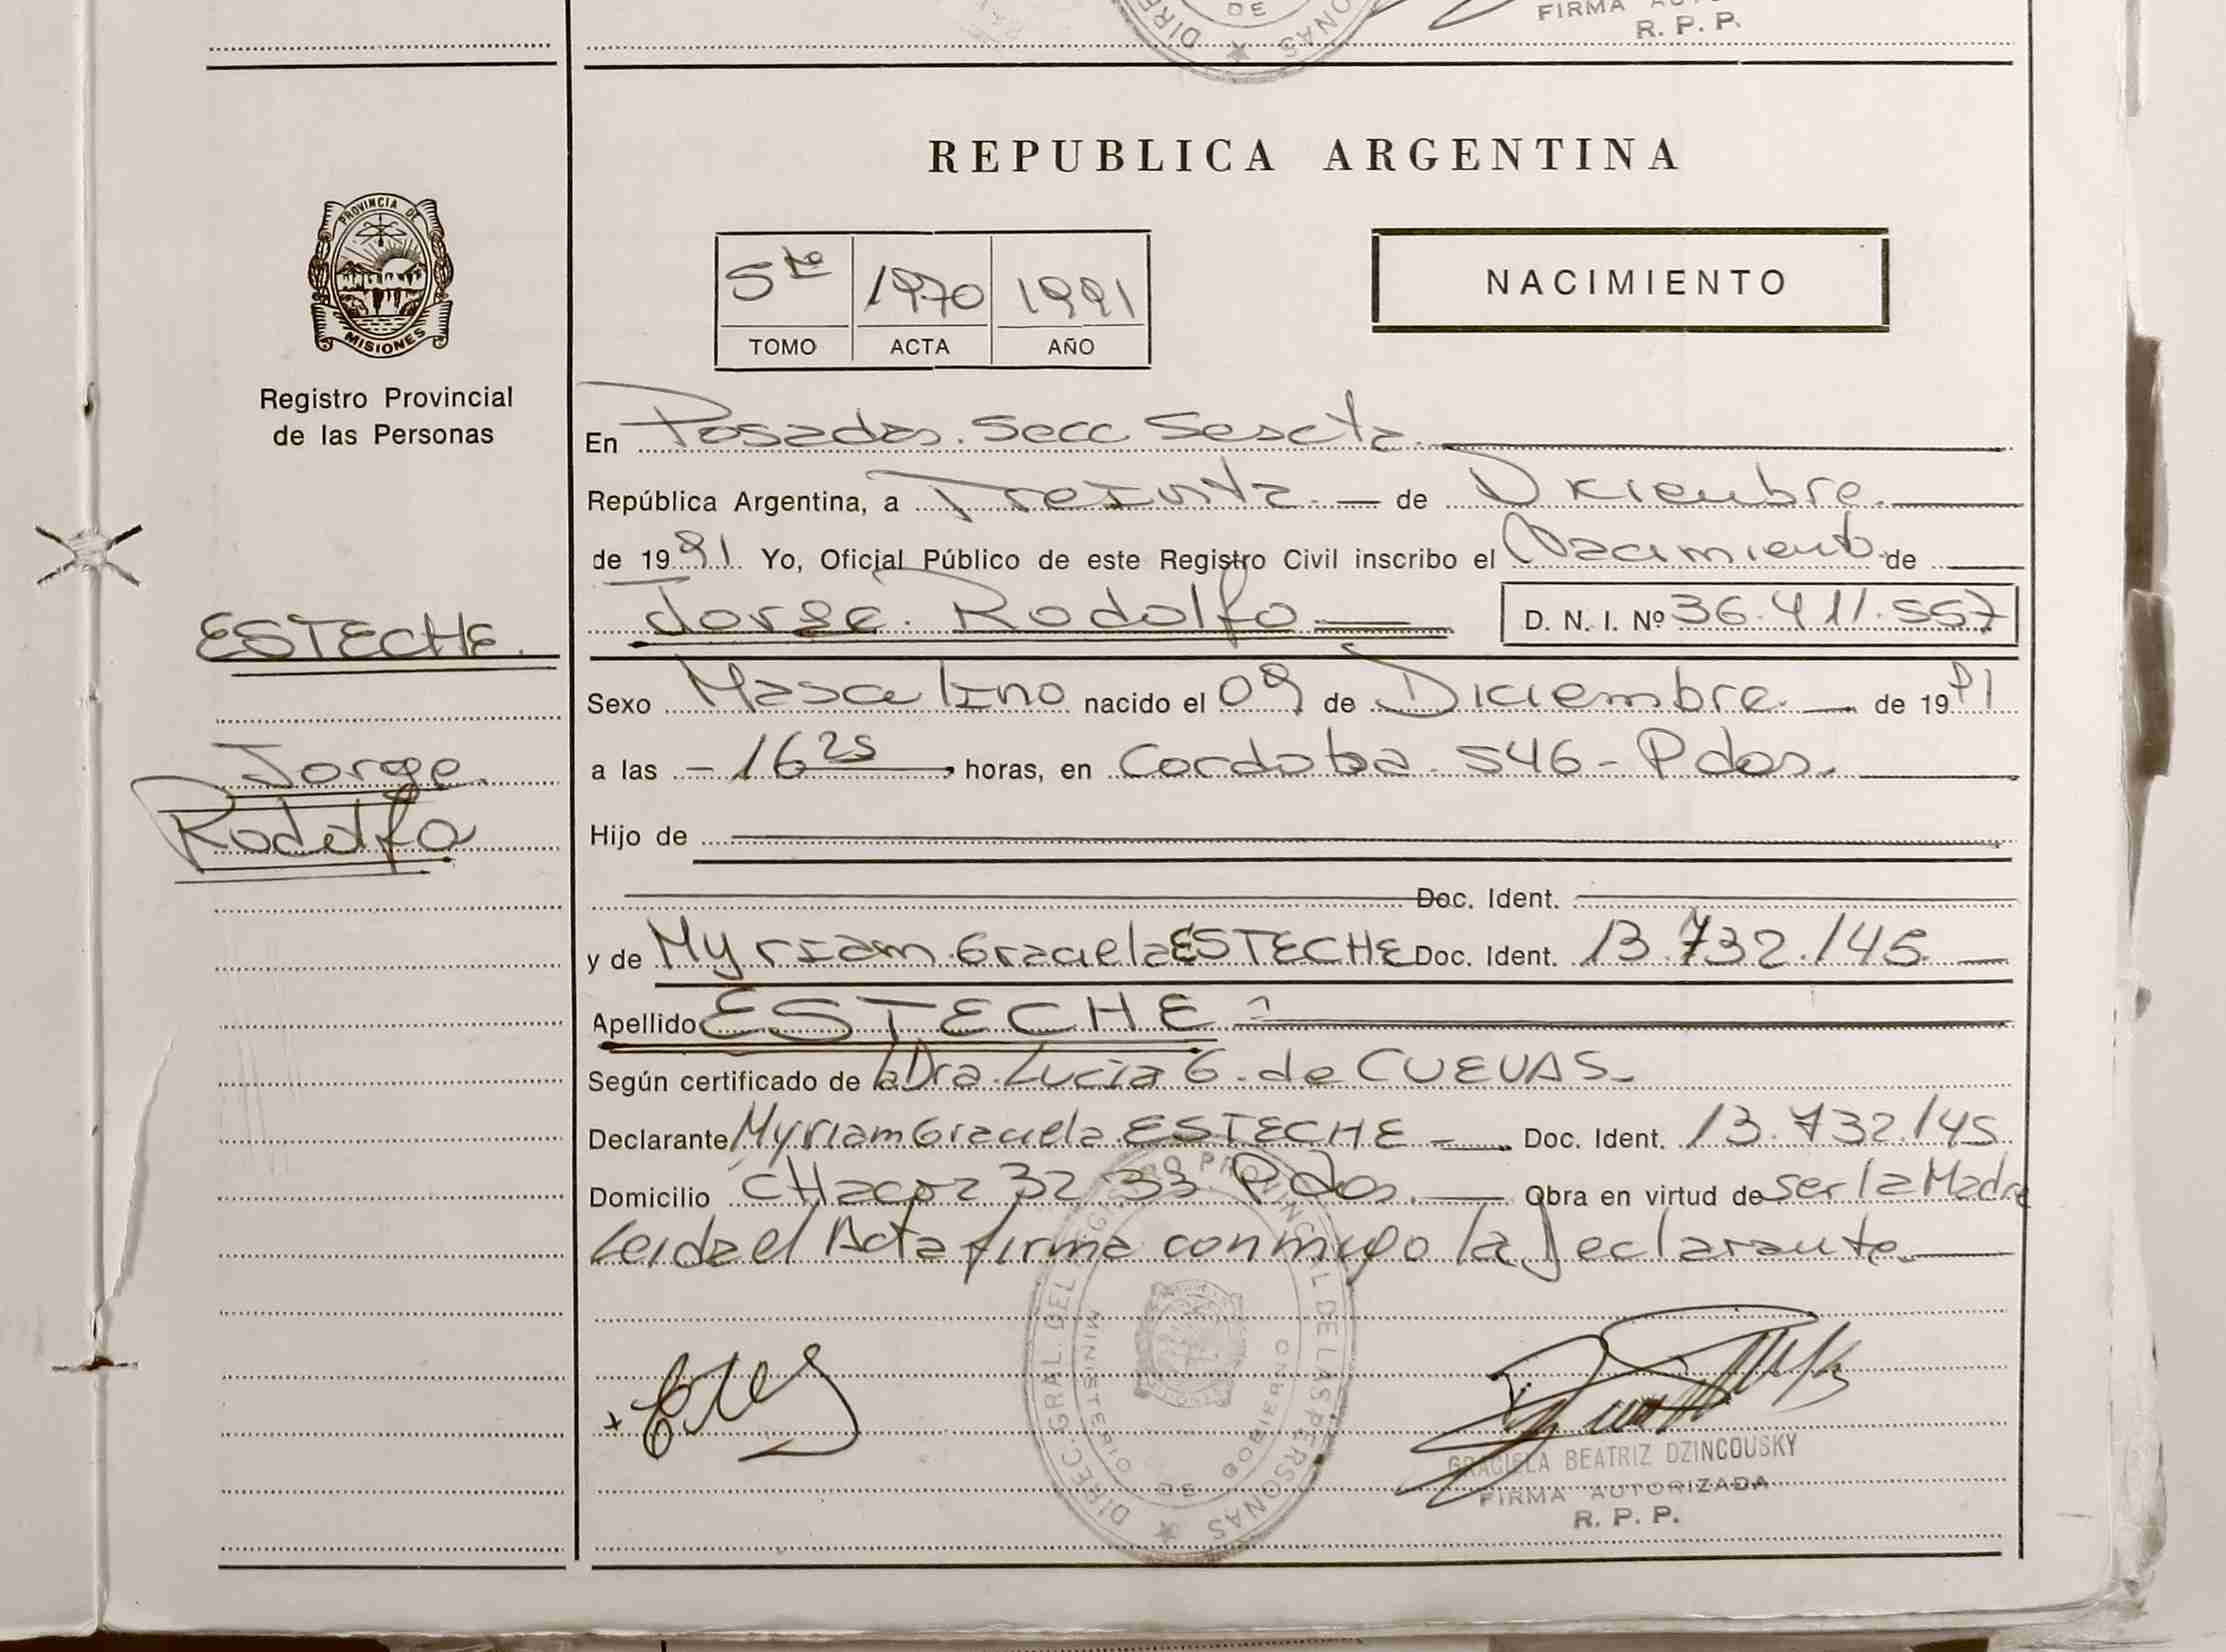 DE
FIRMA
R. P. P.
PROVINCIA DE
MISIONES
Registro Provincial
de las Personas
REPUBLICA ARGENTINA
5to 1970 1991
TOMO ACTA AÑO
NACIMIENTO
En Posadas. Secc Sescta.
República Argentina, a Treinta. de Diciembre.
de 1991. Yo, Oficial Público de este Registro Civil inscribo el Nacimiento de
Jorge. Rodolfo D. N. I. Nº 36.411.557
ESTECHE.
Sexo Masculino nacido el 09 de Diciembre. de 1991
Jorge.
Rodolfo
a las - 16 25 horas, en Cordoba 546 - Pdas.
Hijo de
Doc. Ident.
y de Myriam Graciela ESTECHE Doc. Ident. 13.732.145
Apellido ESTECHE
Según certificado de la Dra. Lucia G. de CUEVAS
Declarante Myriam Graciela ESTECHE - Doc. Ident. 13.732.145
Domicilio CHacra 32 33. Pdas. Obra en virtud de ser la Madre
Leida el Acta firma conmigo la Declarante.
DIREC. GRAL. DEL REGISTRO PROVINCIAL DE LAS PERSONAS
MINISTERIO DE GOBIERNO
GRACIELA BEATRIZ DZINCOUSKY
FIRMA AUTORIZADA
R. P. P.